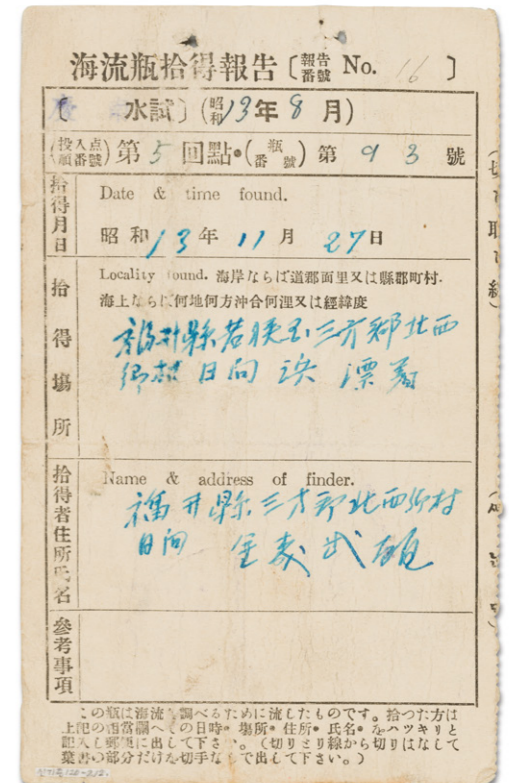 海流瓶拾得報告〔報告番號 No. 16〕
〔 水試〕(昭和13年8月)
(投入点順番號)第5回點・(瓶番號)第93號
拾得月日
Date & time found.
昭和13年11月27日
拾得場所
Locality found. 海岸ならば道郡面里又は縣郡町村.
海上ならば何地何方沖合何浬又は經緯度
福井縣若狹国三方郡北西
郷村 日向 浜 漂着
拾得者住所氏名
Name & address of finder.
福井縣三方郡北西郷村
日向
參考事項
この瓶は海流を調べるために流したものです。拾つた方は
上記の相當欄へその日時・場所・住所・氏名・をハツキリと
記入し郵便に出して下さい。(切りとり線から切りはなして
葉書の部分だけを切手なしで出して下さい。)